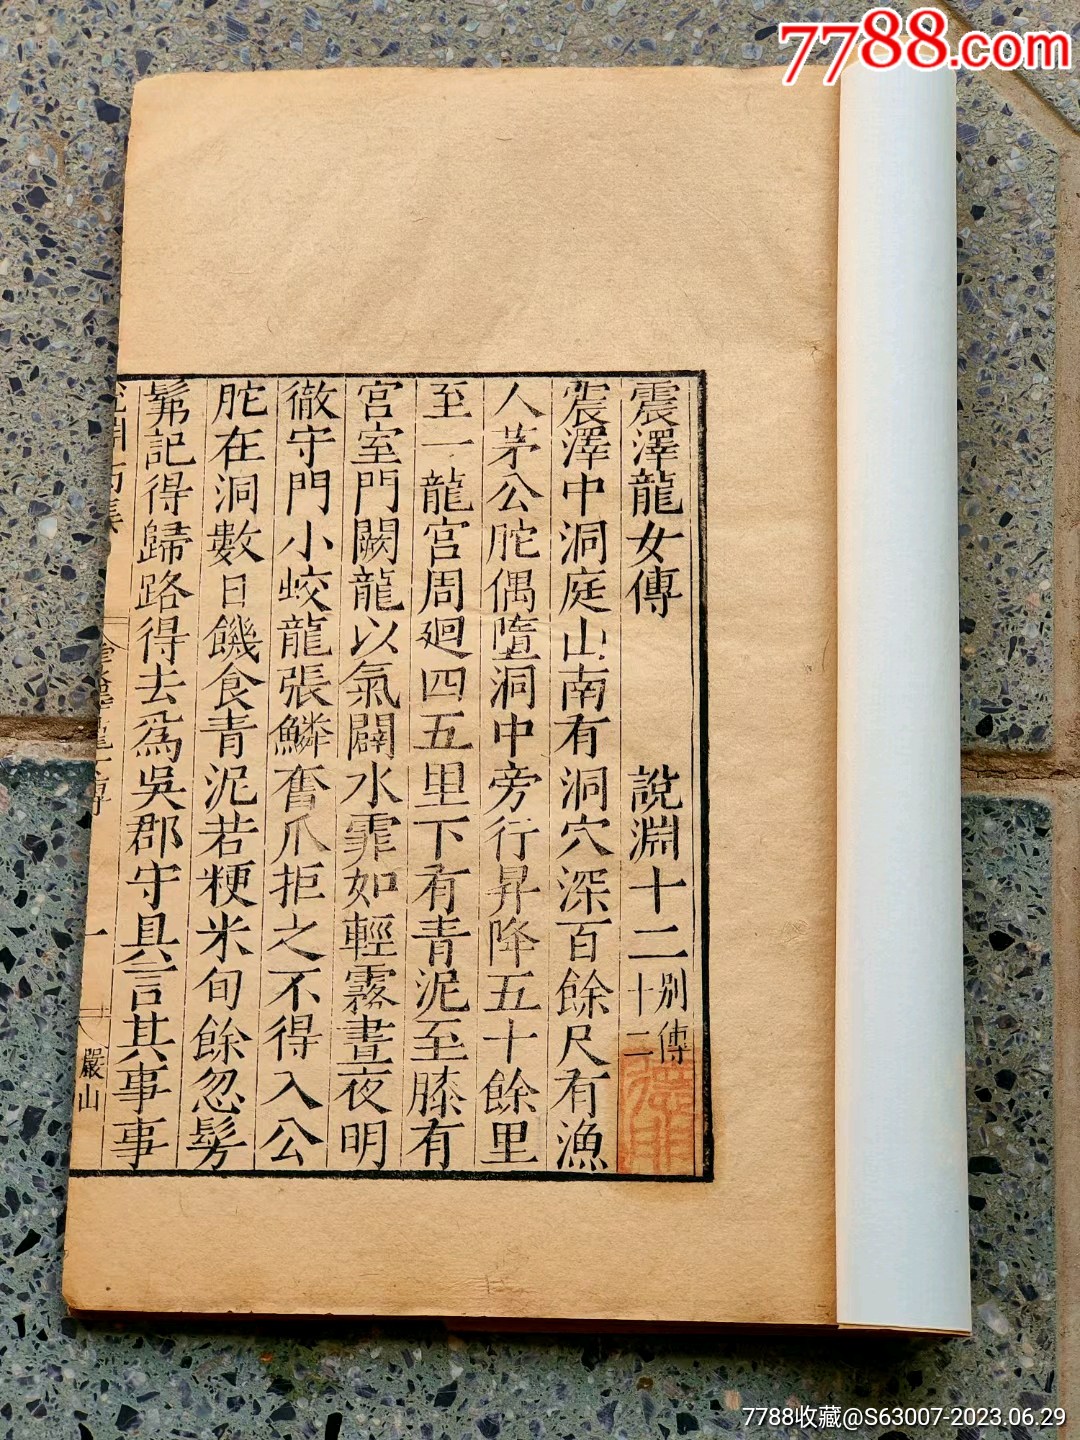 7788.com
震澤龍女傳 說淵十二 別傳十二
震澤中洞庭山南有洞穴深百餘尺有漁
人茅公䏢偶墮洞中旁行昇降五十餘里
至一龍宮周廻四五里下有青泥至膝有
宮室門闕龍以氣闢水霏如輕霧晝夜明
徹守門小蛟龍張鱗奮爪拒之不得入公
䏢在洞數日饑食青泥若粳米旬餘忽髣
髴記得歸路得去爲吳郡守具言其事事
一
嚴山
7788收藏@S63007-2023.06.29